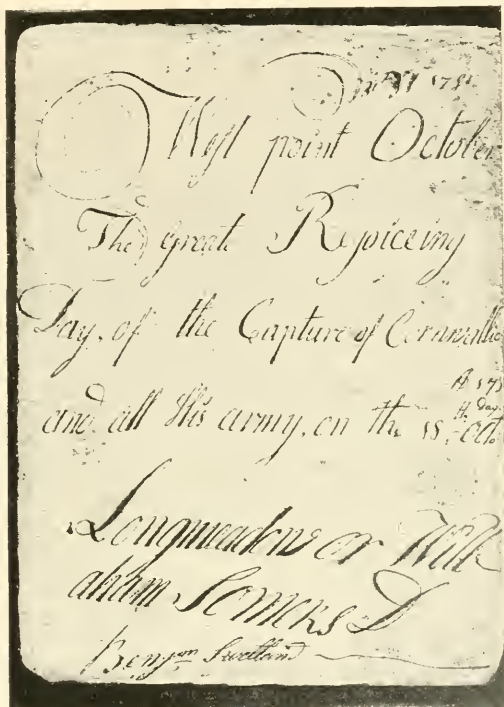 31st 1781
West point October
The Great Rejoiceing
Day, of the Capture of Cornwallis
and all His army, on the
Day
Oct
Longmeadow or Wilb
aham Somers
Benjm Swetland